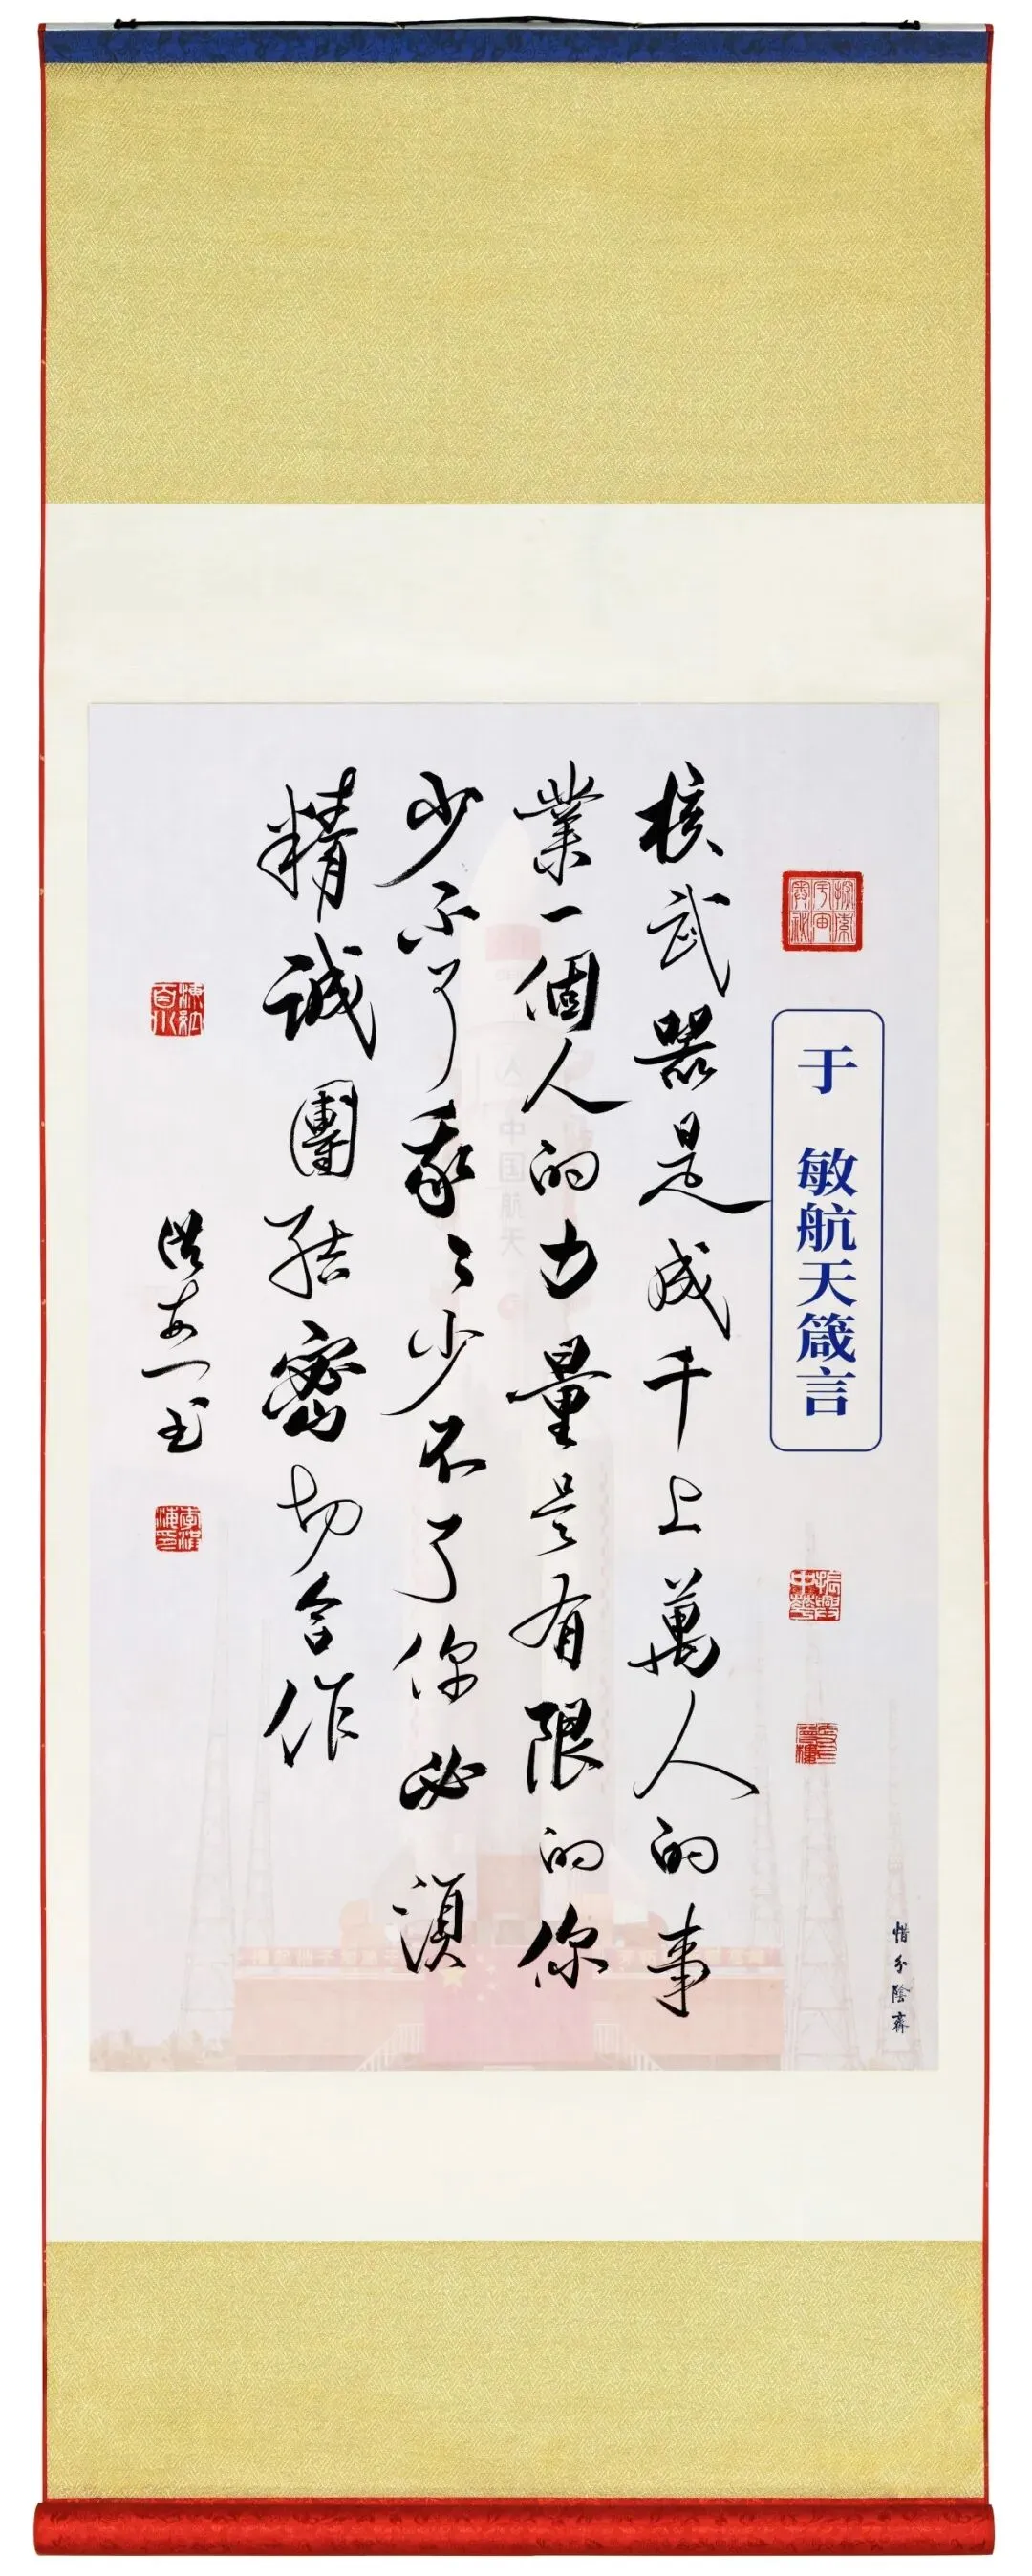 于 敏航天箴言
核武器是成千上萬人的事
業一個人的力量是有限的你
少不了我我少不了你必須
精誠團結密切合作
洪海一书
惜分陰齋
中国航天
振興中華